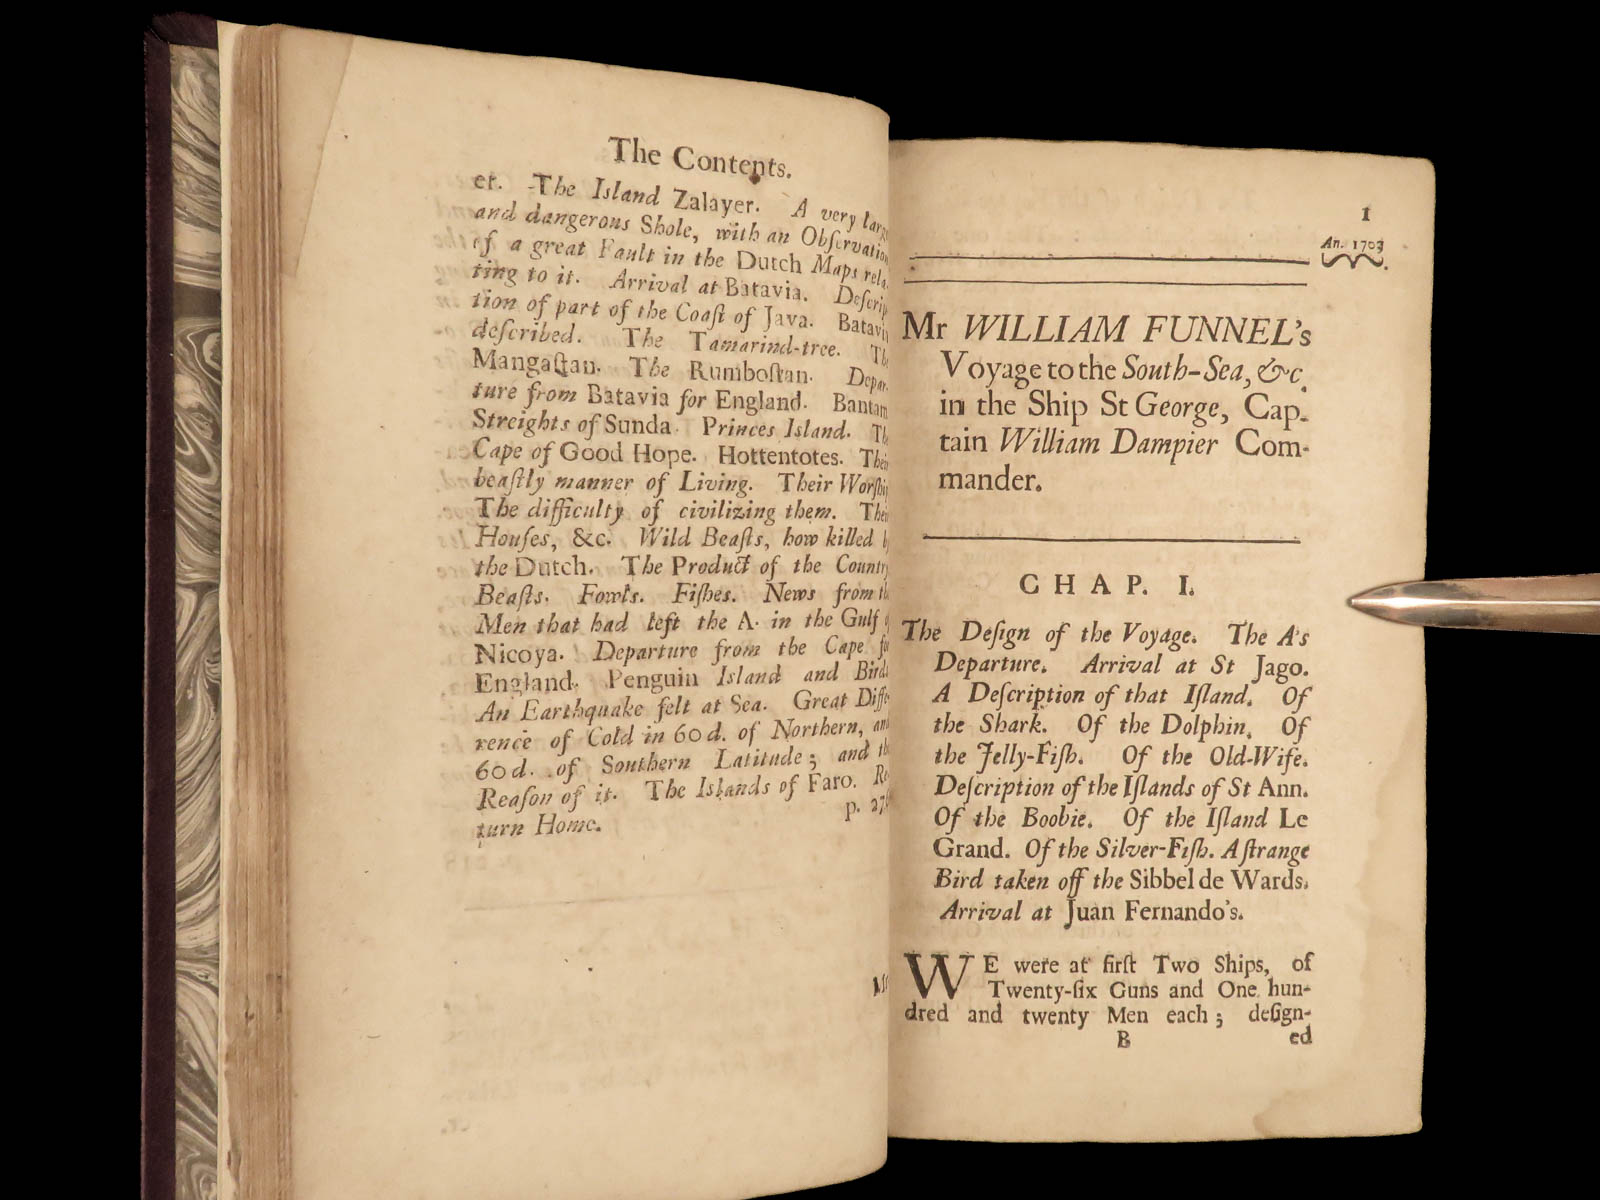 The Contents.
er. The Island Zalayer. A very larg
and dangerous Shole, with an Obſervation
of a great Fault in the Dutch Maps rela-
ting to it. Arrival at Batavia. Deſcrip
tion of part of the Coaſt of Java. Batavia
deſcribed. The Tamarind-tree. The
Mangaſtan. The Rumboſtan. Depar-
ture from Batavia for England. Bantam
Streights of Sunda. Princes Island. Th
Cape of Good Hope. Hottentotes. Their
beaſtly manner of Living. Their Worſhip
The difficulty of civilizing them. Their
Houſes, &c. Wild Beaſts, how killed b
the Dutch. The Product of the Country
Beaſts. Fowls. Fiſhes. News from th
Men that had left the A. in the Gulf
Nicoya. Departure from the Cape fo
England. Penguin Island and Birds
An Earthquake felt at Sea. Great Diffe-
rence of Cold in 60 d. of Northern, and
60 d. of Southern Latitude; and th
Reaſon of it. The Islands of Faro. Re
turn Home. p. 276
1
An. 1703
Mr WILLIAM FUNNEL's
Voyage to the South-Sea, &c.
in the Ship St George, Cap-
tain William Dampier Com-
mander.
CHAP. I.
The Deſign of the Voyage. The A's
Departure. Arrival at St Jago.
A Deſcription of that Iſland. Of
the Shark. Of the Dolphin. Of
the Jelly-Fiſh. Of the Old-Wife.
Deſcription of the Iſlands of St Ann.
Of the Boobie. Of the Iſland Le
Grand. Of the Silver-Fiſh. A ſtrange
Bird taken off the Sibbel de Wards.
Arrival at Juan Fernando's.
WE were at firſt Two Ships, of
Twenty-ſix Guns and One hun-
dred and twenty Men each; deſign-
B ed